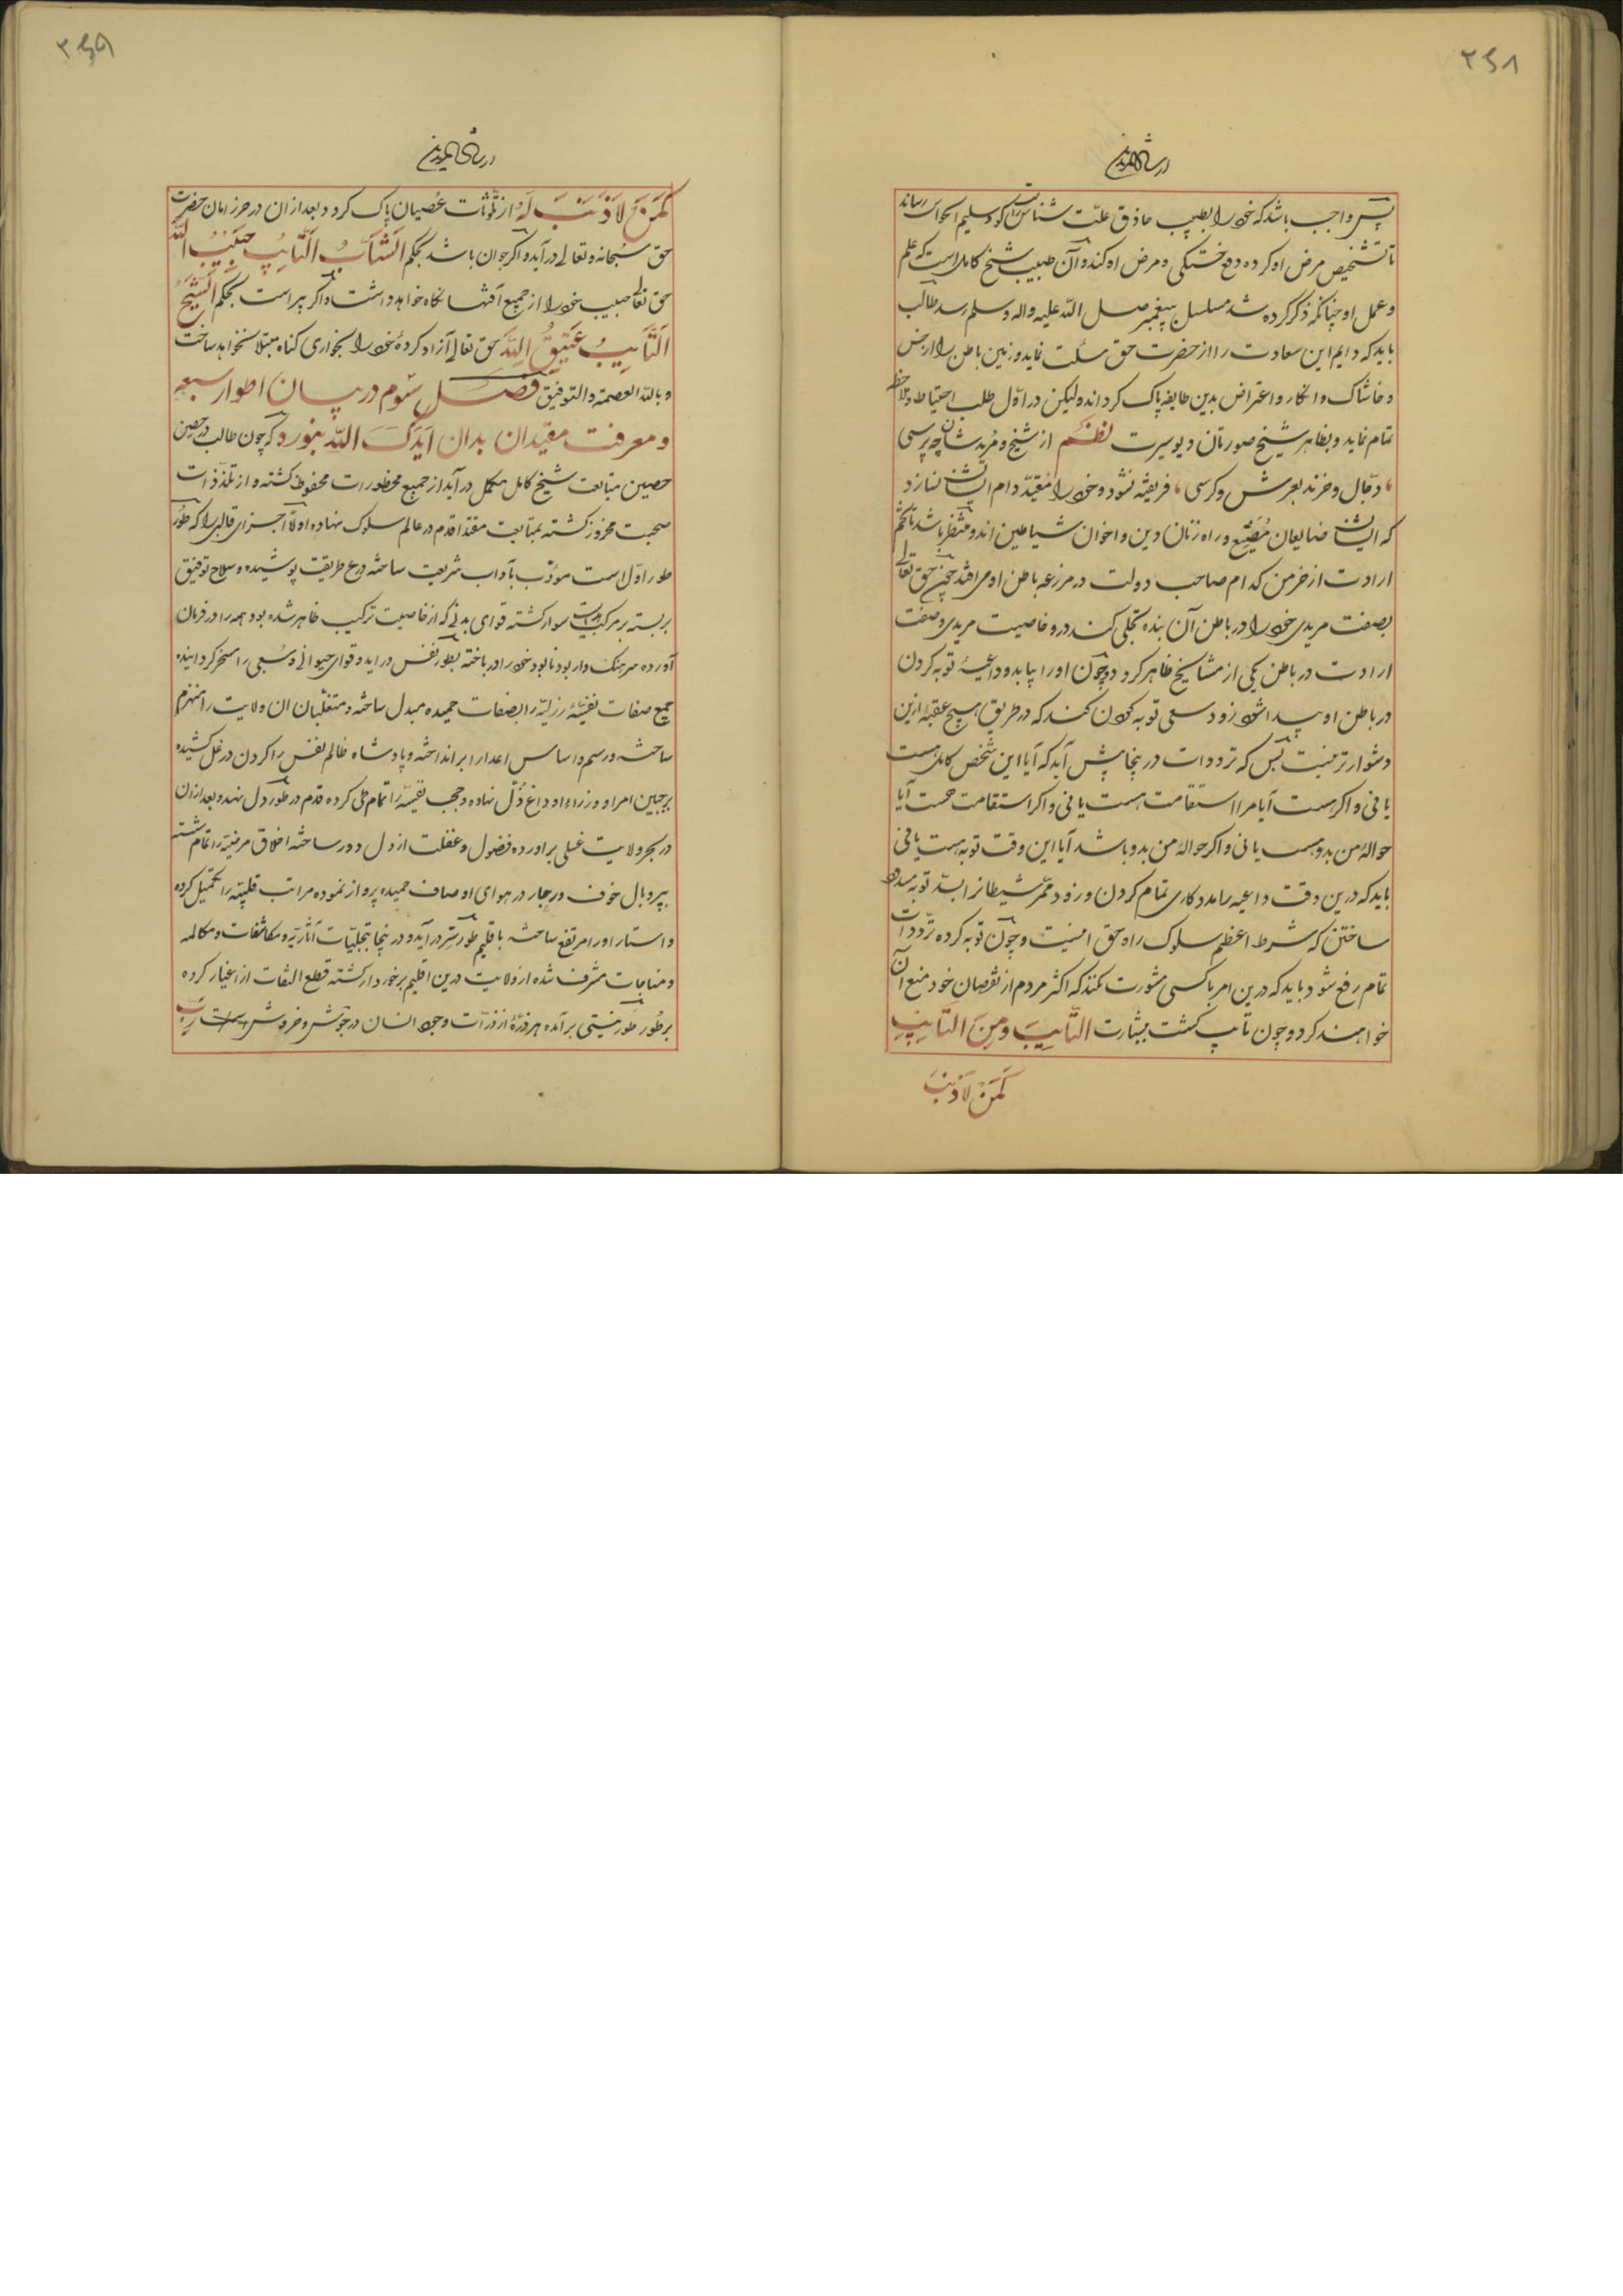 ۲۶۸
ارشاد المریدین
پس واجب باشد که خود را بطبیب حاذق علت شناس رساند
تا تشخیص مرض او کرده دفع خستگی و مرض او کند و آن طبیب شیخ کامل است که علم
و عمل او چنانکه ذکر کرده شد مسلسل به پیغمبر صلی الله علیه واله وسلم رسد طالب
باید که دایم این سعادت را از حضرت حق مسئلت نماید و زمین باطن را از خس
و خاشاک و انکار و اعتراض بدین طایفه پاک کرداند ولیکن در اول طلب احتیاط و ملاحظه
تمام نماید و بظاهر شیخ صورتان دیو سیرت نظم از شیخ و مرید شان چه پرسی
دجال و خرند بعرش و کرسی فریفته نشود و خود را مقید دام ایشان نسازد
که ایشان ضایعان مضیع و راه زنان دین و اخوان شیاطین اند و منتظر باشد تا تخم
ارادت از خرمن کدام صاحب دولت در مزرعه باطن او می افتد چون حق تعالی
بصفت مریدی خود را در باطن آن بنده تجلی کند درو خاصیت مریدی و صفت
ارادت در باطن یکی از مشایخ ظاهر کردد و چون او را بیابد و داعیهٔ توبه کردن
در باطن او پیدا شود زود سعی توبه کردن کند که در طریق هیچ عقبهٔ ازین
دشوارتر نیست بس که ترددات درینجا پیش آید که آیا این شخص کامل هست
یا نی و اکر هست آیا مرا استقامت هست یا نی و اکر استقامت هست آیا
حوالهٔ من بدو هست یا نی و اکر حوالهٔ من بدو باشد آیا این وقت توبه هست یا نی
باید که درین وقت داعیه را مددکاری تمام کردن و زود ممر شیطان را بسد توبه مسدود
ساختن که شرط اعظم سلوک راه حق اینست و چون توبه کرده ترددات
تمام رفع شود باید که درین امر با کسی مشورت نکند که اکثر مردم از نقصان خود منع آن
خواهند کرد و چون تایب کشت ببشارت التایب من الذنب
کمن لا ذنب
۲۶۹
ارشاد المریدین
کمن لا ذنب له از تلوثات عصیان پاک کردد و بعد ازان در حرز امان حضرت
حق سبحانه و تعالی درآید و اکر جوان باشد بحکم الشاب التایب حبیب الله
حق تعالی حبیب خود را از جمیع آفتها نکاه خواهد داشت و اکر پیر است بحکم الشیخ
التایب عتیق الله حق تعالی آزاد کردهٔ خود را بخواری کناه مبتلا نخواهد ساخت
و بالله العصمة والتوفیق فصل سوم در بیان اطوار سبعه
و معرفت مقیدان بدان ایدک الله بنوره که چون طالب در حصن
حصین متابعت شیخ کامل مکمل درآید از جمیع محظورات محفوظ کشته و از تلذذات
صحبت کشته بمتابعت مقتدا قدم در عالم سلوک نهاده اولا اجزای قالبی را که طور
طور اول است مودب بآداب شریعت ساخته درع طریقت پوشیده و سلاح توفیق
بر بسته بر مرکب سوار کشته قوای بدنی که از خاصیت ترکیب ظاهر شده بود همه را در فرمان
آورده سرهنک وار بود نابود خود را در باخته بطور نفس درآید و قوای حیوانی و سبعی را مسخر کردانیده
جمیع صفات نفسیهٔ رزیله را بصفات حمیده مبدل ساخته و متغلبان ان ولایت را منهزم
ساخته و رسم و اساس اعدا را برانداخته و پادشاه ظالم نفس را کردن در غل کشیده
بر جبین امرا و وزراء او داغ ذل نهاده و حجب نفسیه را تمام طی کرده قدم در طور دل نهد و بعد ازان
در بحر ولایت غسلی براورده فضول و غفلت از دل دور ساخته اخلاق مرضیه را تمام
بپر و بال خوف و رجا در هوای اوصاف حمیده پرواز نموده مراتب قلبیه را تکمیل کرده
و استار او را مرتفع ساخته باقلیم طور سر درآید و درینجا بتجلیات آثاریه و مکاشفات و مکالمه
و مناجات مشرف شده از ولایت درین اقلیم برخوردار کشته قطع التفات از اغیار کرده
بر طور طور نیستی برآمده هر ذرهٔ از ذرات وجود انسان در جوش و خروش رب